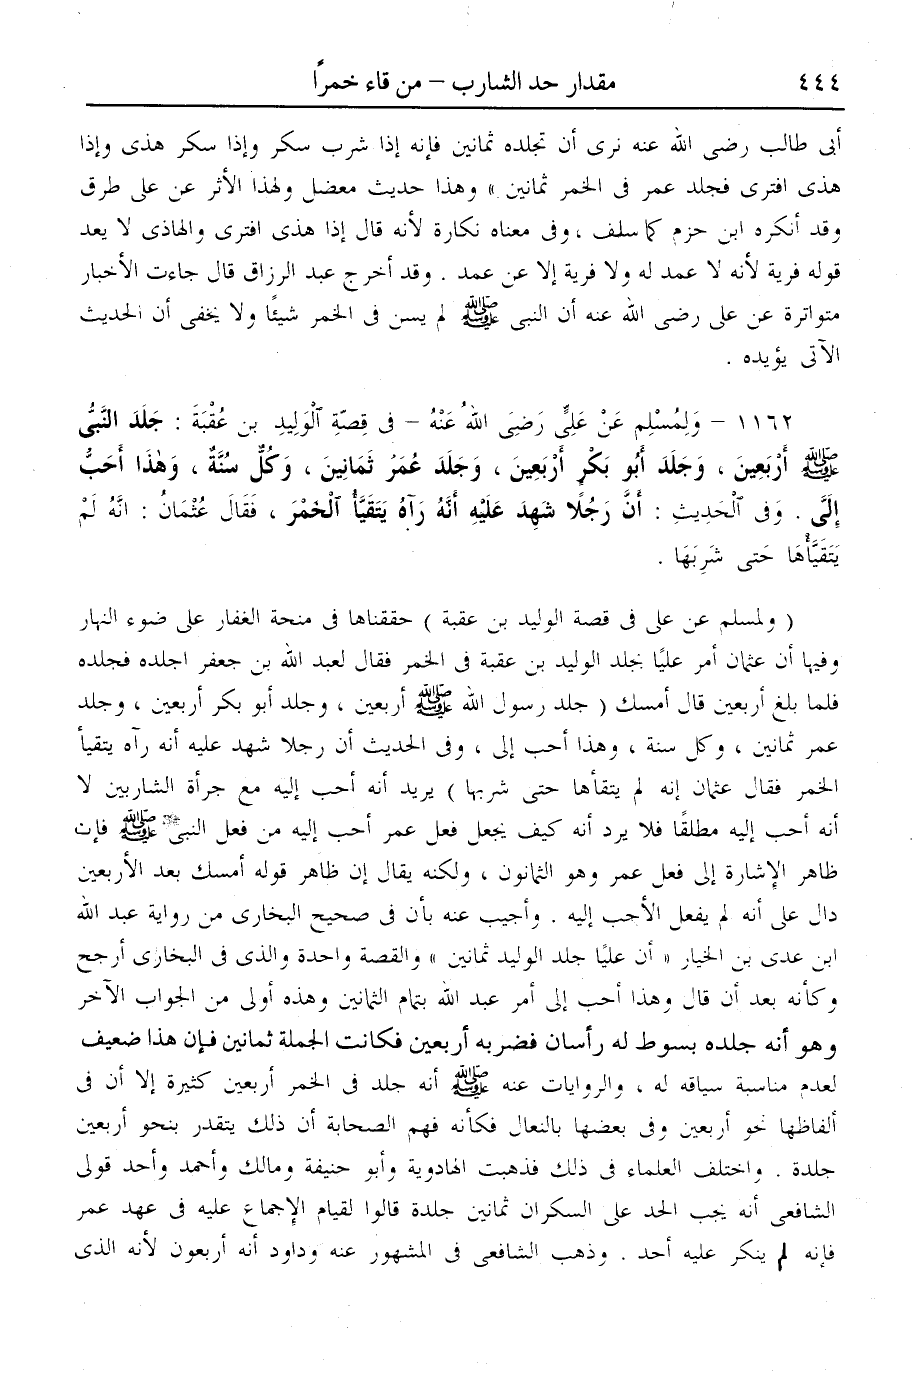 ٤٤٤ مقدار حد الشارب – من قاء خمرًا
أبى طالب رضى الله عنه نرى أن تجلده ثمانين فإنه إذا شرب سكر وإذا سكر هذى وإذا
هذى افترى فجلد عمر فى الخمر ثمانين » وهذا حديث معضل ولهذا الأثر عن على طرق
وقد أنكره ابن حزم كما سلف ، وفى معناه نكارة لأنه قال إذا هذى افترى والهاذى لا يعد
قوله فرية لأنه لا عمد له ولا فرية إلا عن عمد . وقد أخرج عبد الرزاق قال جاءت الأخبار
متواترة عن على رضى الله عنه أن النبى ﷺ لم يسن فى الخمر شيئًا ولا يخفى أن الحديث
الآتى يؤيده .
١١٦٢ – وَلِمُسْلِمٍ عَنْ عَلِىٍّ رَضِىَ اللهُ عَنْهُ – فى قِصَّةِ الْوَلِيدِ بن عُقْبَةَ : جَلَدَ النَّبِىُّ
ﷺ أَرْبَعِينَ ، وَجَلَدَ أَبُو بَكْرٍ أَرْبَعِينَ ، وَجَلَدَ عُمَرُ ثَمَانِينَ ، وَكُلٌّ سُنَّةٌ ، وَهٰذَا أَحَبُّ
إِلَىَّ . وَفى الْحَدِيثِ : أَنَّ رَجُلًا شَهِدَ عَلَيْهِ أَنَّهُ رَآهُ يَتَقَيَّأُ الْخَمْرَ ، فَقَالَ عُثْمَانُ : انَّهُ لَمْ
يَتَقَيَّأْهَا حَتى شَرِبَهَا .
( ولمسلم عن على فى قصة الوليد بن عقبة ) حققناها فى منحة الغفار على ضوء النهار
وفيها أن عثمان أمر عليًا بجلد الوليد بن عقبة فى الخمر فقال لعبد الله بن جعفر اجلده فجلده
فلما بلغ أربعين قال أمسك ( جلد رسول الله ﷺ أربعين ، وجلد أبو بكر أربعين ، وجلد
عمر ثمانين ، وكل سنة ، وهذا أحب إلى ، وفى الحديث أن رجلا شهد عليه أنه رآه يتقيأ
الخمر فقال عثمان إنه لم يتقأها حتى شربها ) يريد أنه أحب إليه مع جرأة الشاربين لا
أنه أحب إليه مطلقًا فلا يرد أنه كيف يجعل فعل عمر أحب إليه من فعل النبى ﷺ فإن
ظاهر الإشارة إلى فعل عمر وهو الثمانون ، ولكنه يقال إن ظاهر قوله أمسك بعد الأربعين
دال على أنه لم يفعل الأحب إليه . وأجيب عنه بأن فى صحيح البخارى من رواية عبد الله
ابن عدى بن الخيار « أن عليًا جلد الوليد ثمانين » والقصة واحدة والذى فى البخارى أرجح
وكأنه بعد أن قال وهذا أحب إلى أمر عبد الله بتمام الثمانين وهذه أولى من الجواب الآخر
وهو أنه جلده بسوط له رأسان فضربه أربعين فكانت الجملة ثمانين فإن هذا ضعيف
لعدم مناسبة سياقه له ، والروايات عنه ﷺ أنه جلد فى الخمر أربعين كثيرة إلا أن فى
ألفاظها نحو أربعين وفى بعضها بالنعال فكأنه فهم الصحابة أن ذلك يتقدر بنحو أربعين
جلدة . واختلف العلماء فى ذلك فذهبت الهادوية وأبو حنيفة ومالك وأحمد وأحد قولى
الشافعى أنه يجب الحد على السكران ثمانين جلدة قالوا لقيام الإجماع عليه فى عهد عمر
فإنه لم ينكر عليه أحد . وذهب الشافعى فى المشهور عنه وداود أنه أربعون لأنه الذى